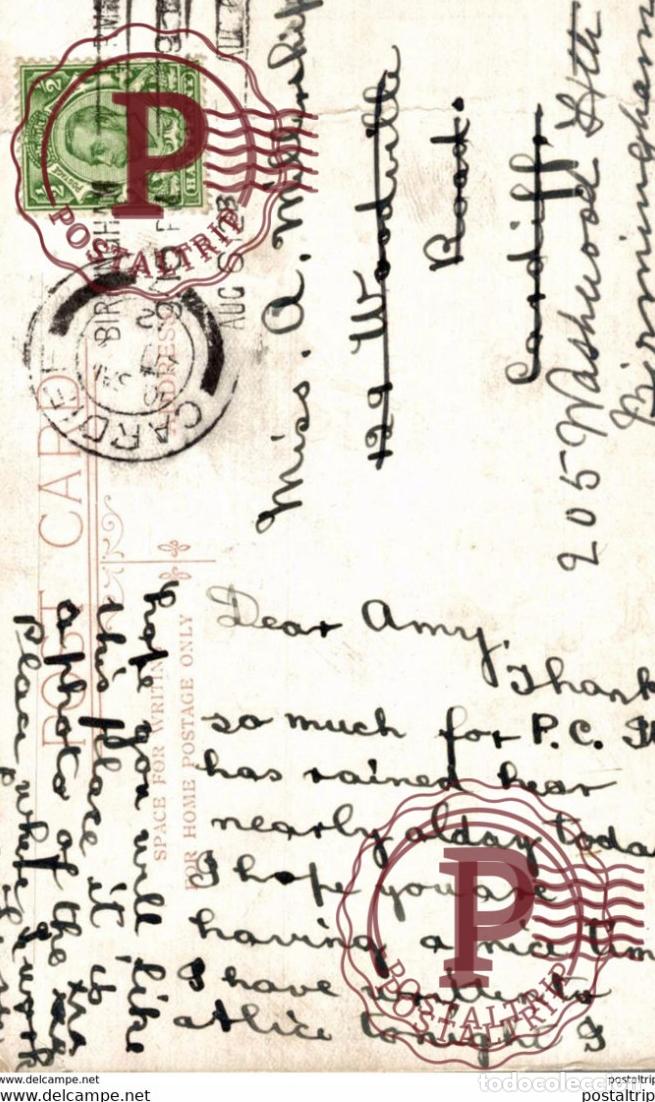 Miss. A. Millership
129 Woodville
Road.
Cardiff.
205 Washwood Hth
Birmingham
POST CARD
ADDRESS
SPACE FOR WRITING
FOR HOME POSTAGE ONLY
CARDIFF
BIRMINGHAM
AUG 6
Dear Amy,
Thank
so much for P.C. It
has rained hear
nearly alday today
I hope you are
having a nice time
I have written to
alice tonight I
hope you will like
this place it is
a photo of the
place where I work
P
POSTALTRIP
P
POSTALTRIP
POSTALTRIP
www.delcampe.net
postaltrip
todocoleccion
www.delcampe.net
postaltrip